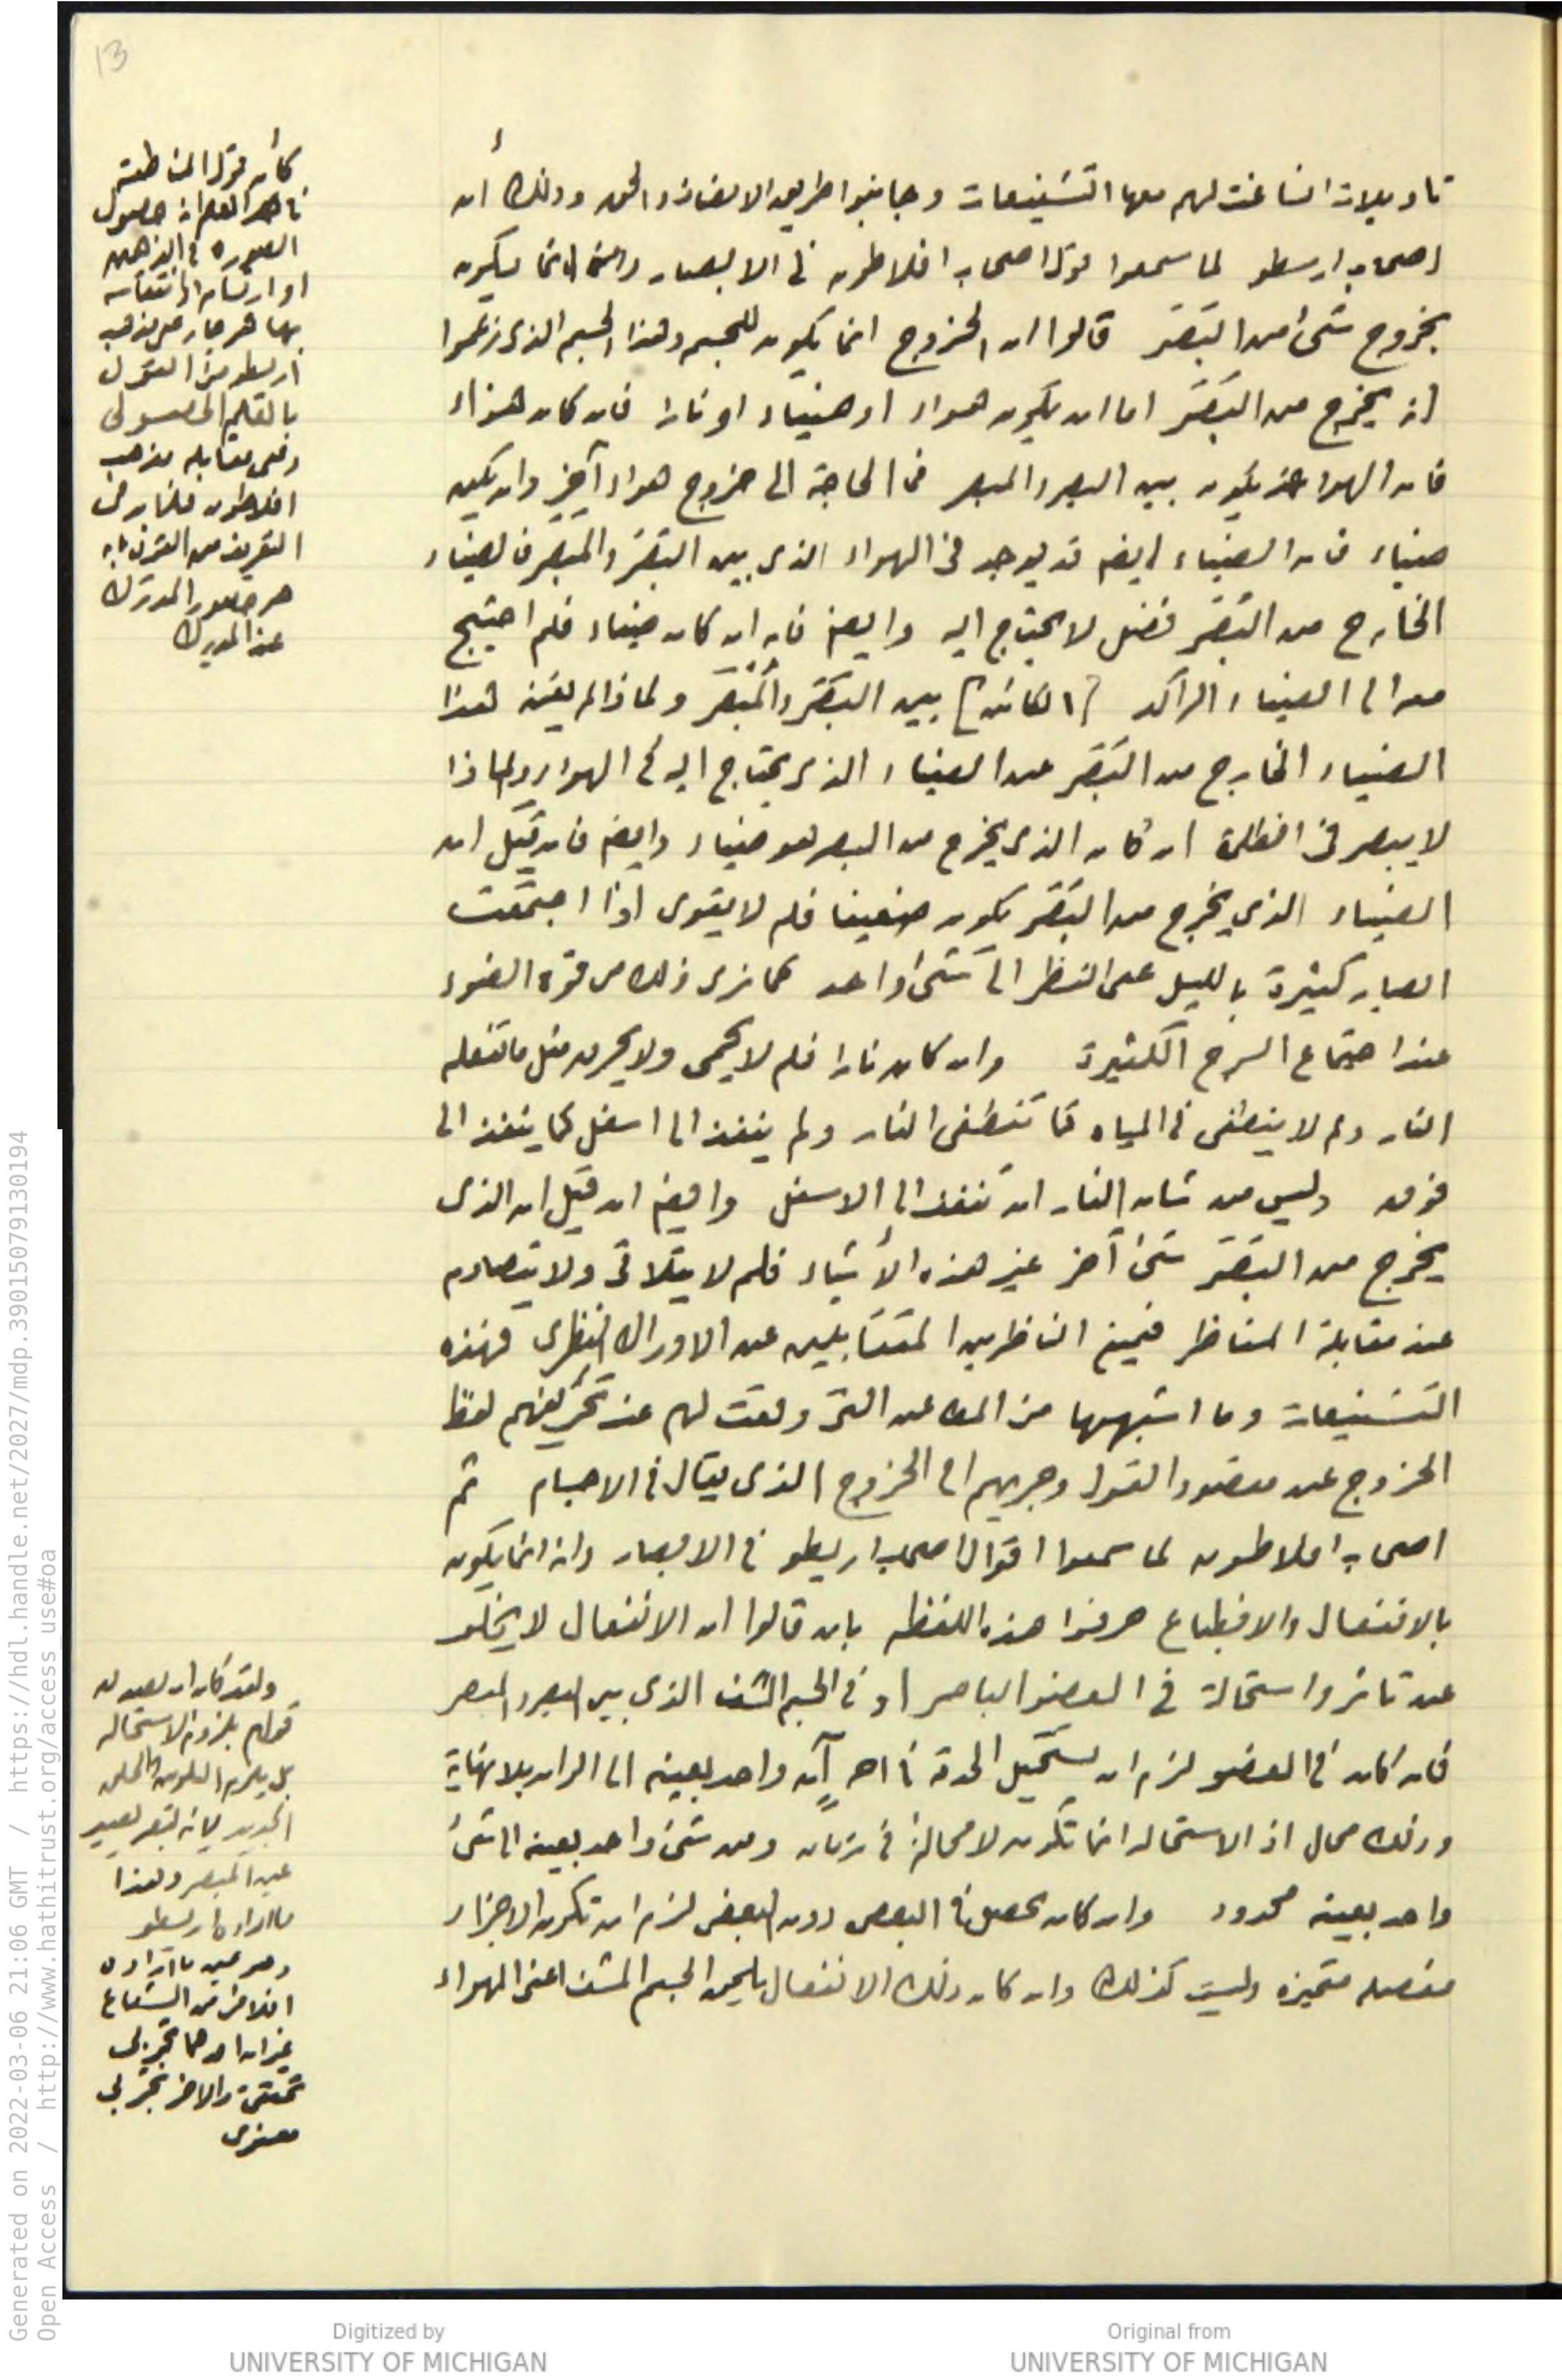 13
تاويلات انساغت لهم معها التشنيعات وجانبوا طريق الانصاف والحق وذلك أن
اصحاب ارسطو لما سمعوا قول اصحاب افلاطون فى الابصار وانه انما يكون
بخروج شىء من البَصَر قالوا ان الخروج انما يكون للجسم وهذا الجسم الذى زعموا
انه يخرج من البَصَر اما ان يكون هواء او ضياء او نارا فان كان هواء
فان الهواء قد يكون بين البصر والمبصر فما الحاجة الى خروج هواء آخر وان يكن
ضياء فان الضياء ايضا قد يوجد فى الهواء الذى بين البَصَر والمبصر فالضياء
الخارج من البَصَر فضل لا يحتاج اليه وايضا فانه ان كان ضياء فلم احتيج
معه الى الضياء الراكد [الكائن] بين البَصَر والمُبْصَر ولماذا لم يغن هذا
الضياء الخارج من البَصَر عن الضياء الذى يحتاج اليه فى الهواء ولماذا
لا يبصر فى الظلمة ان كان الذى يخرج من البصر هو ضياء وايضا فان قيل ان
الضياء الذى يخرج من البَصَر يكون ضعيفا فلم لا يقوى اذا اجتمعت
ابصار كثيرة بالليل على النظر الى شىء واحد كما نرى ذلك من قوة الضوء
عند اجتماع السرج الكثيرة وان كان نارا فلم لا يحمى ولا يحرق مثل ما تفعله
النار ولم لا ينطفى فى المياه كما تنطفى النار ولم ينفذ الى اسفل كما ينفذ الى
فوق وليس من شان النار ان تنفذ الى الاسفل وايضا ان قيل ان الذى
يخرج من البَصَر شىء آخر غير هذه الأشياء فلم لا يتلاقى ولا يتصادم
عند مقابلة المناظر فيمنع الناظرين المتقابلين عن الادراك النظرى فهذه
التشنيعات وما اشبهها من المطاعن التى وقعت لهم عند تحريفهم لفظ
الخروج عن مقصود القول وجريهم الى الخروج الذى يقال فى الاجسام ثم
اصحاب افلاطون لما سمعوا اقوال اصحاب ارسطو فى الابصار وانه انما يكون
بالانفعال والانطباع حرفوا هذه اللفظه بان قالوا ان الانفعال لا يخلو
عن تاثر واستحالة فى العضو الباصر او فى الجسم المشف الذى بين البصر والمبصر
فان كان فى العضو لزم ان يستحيل الحدقة فى آنٍ واحد بعينه الى الوان بلا نهاية
وذلك محال اذ الاستحاله انما تكون لا محالة فى زمان ومن شىء واحد بعينه الى شىء
واحد بعينه محدود وان كان يحصل فى البعض دون البعض لزم ان تكون الاجزاء
مفصله متميزه وليست كذلك وان كان ذلك الانفعال يلحق الجسم المشف اعنى الهواء
كأن قول المناطقة
ان العلم انه حصول
الصوره فى الذهن
او ارتسام او انتقاشه
بها هو جار على مذهب
ارسطو من القول
بالعلم الحصولى
وفى مقابله مذهب
افلاطون
التعريف من القول بانه
هو حضور المدرَك
عند المدرِك
ولقد كان
قولهم بلزوم الاستحاله
بل يلزم
عين المبصر وهذا
ما اراده ارسطو
وهو عين ما اراده
افلاطون من الشعاع
غير ان احدهما تجربى
والاخر تجربى
معنوى
Generated on 2022-03-06 21:06 GMT / https://hdl.handle.net/2027/mdp.39015079130194
Open Access / http://www.hathitrust.org/access_use#oa
Digitized by
UNIVERSITY OF MICHIGAN
Original from
UNIVERSITY OF MICHIGAN